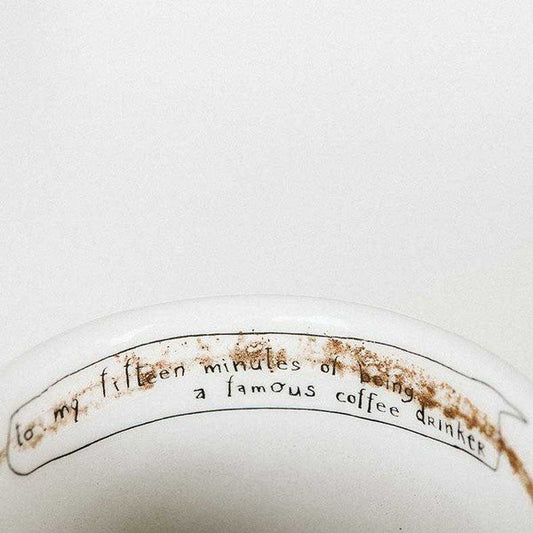 to my fifteen minutes of being
a famous coffee dRiNKER